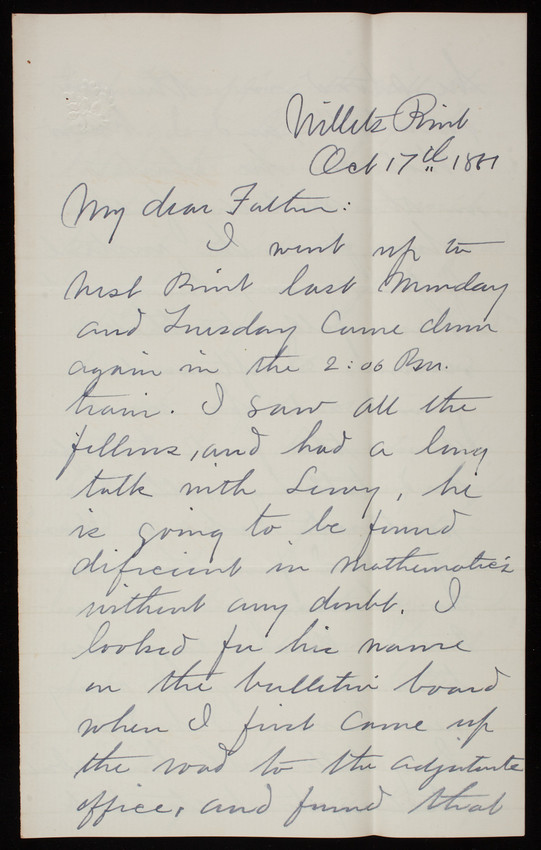 Willets Point
Oct 17th 1881
My dear Father:
I went up to
West Point last Monday
and Tuesday Came down
again in the 2:06 Pm.
train. I saw all the
fellows, and had a long
talk with , he
is going to be found
dificient in Mathematics
without any doubt. I
looked for his name
on the bulletin board
when I first came up
the road to the adjutants
office, and found that